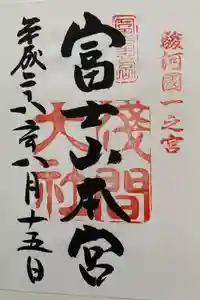 駿河國一之宮
富士山本宮
淺間大社
平成二十八年八月十五日